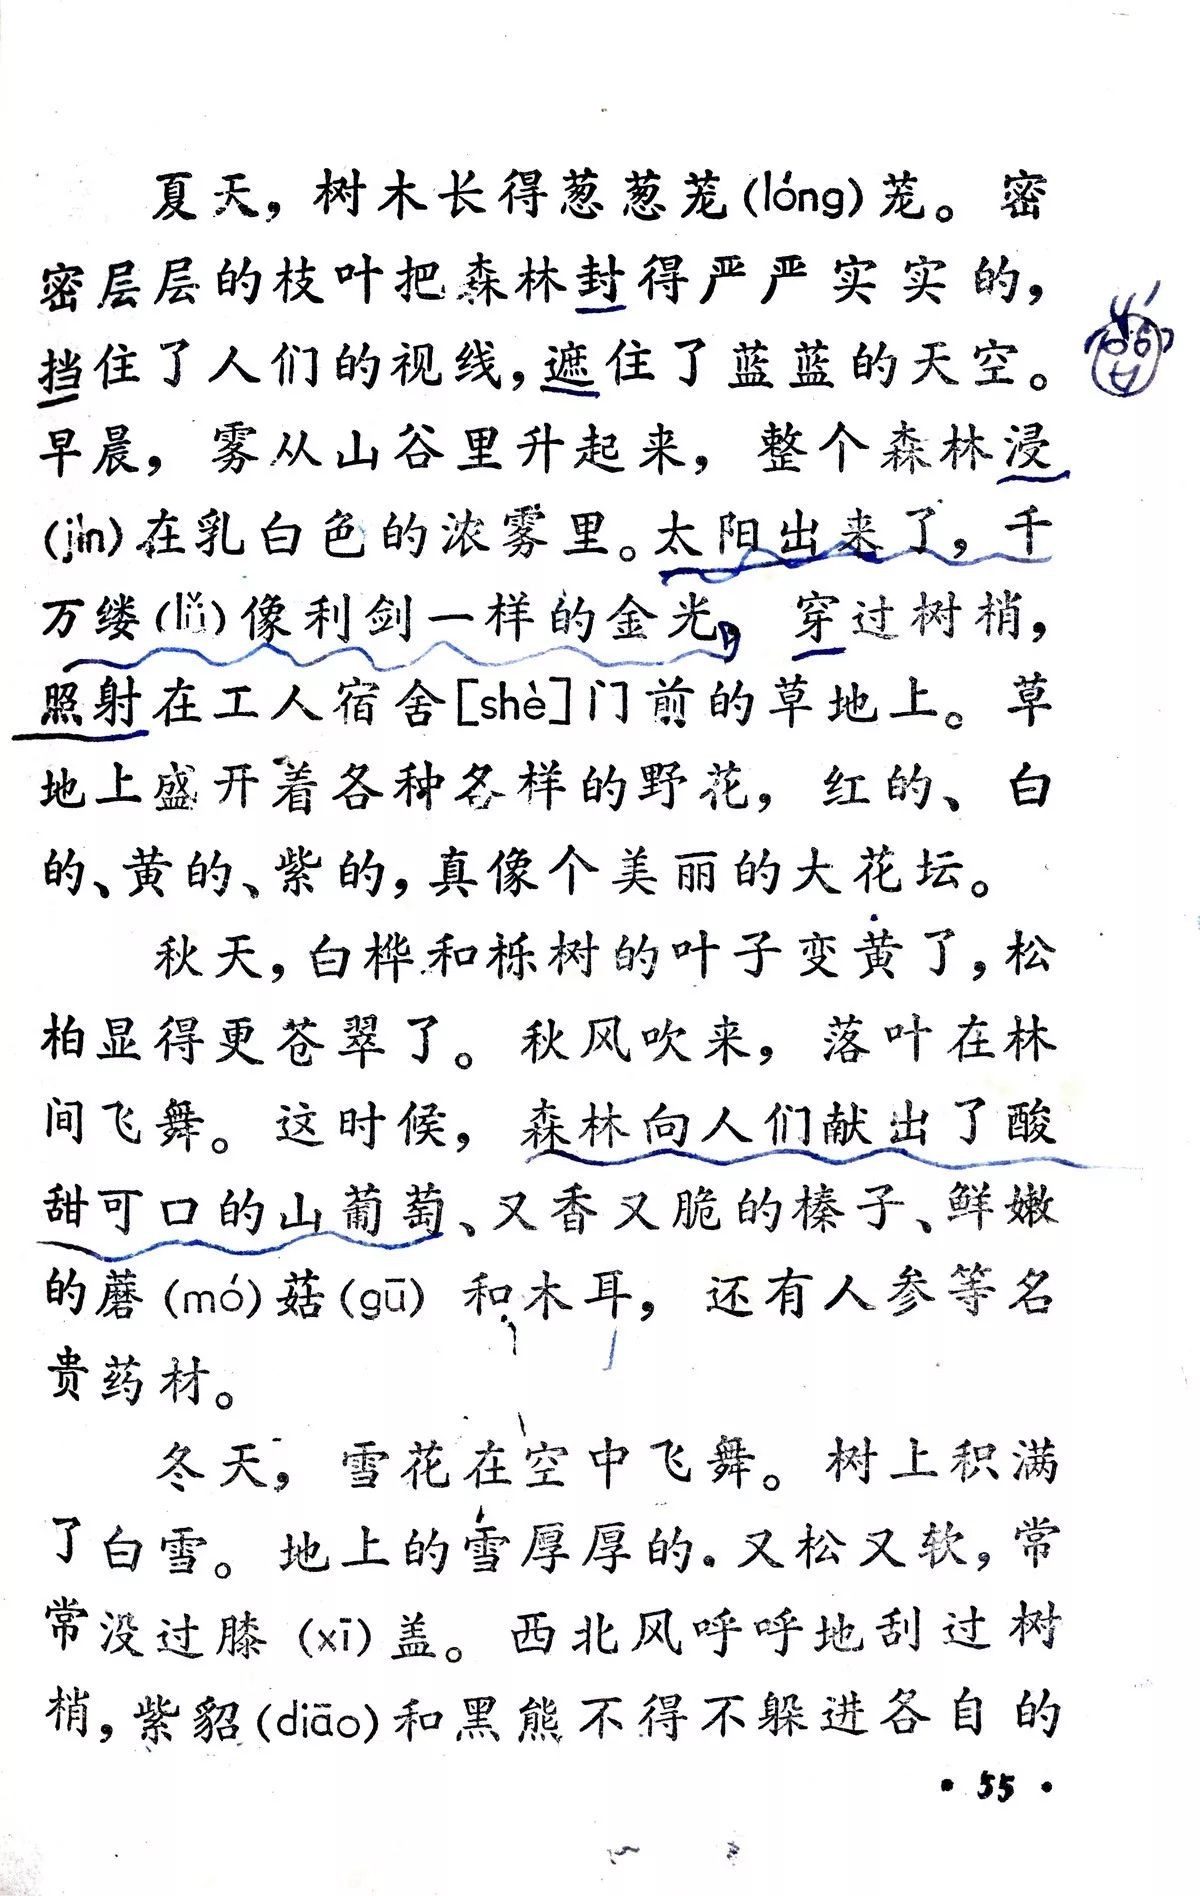 夏天，树木长得葱葱茏(lóng)茏。密
密层层的枝叶把森林封得严严实实的，
挡住了人们的视线，遮住了蓝蓝的天空。
早晨，雾从山谷里升起来，整个森林浸
(jìn)在乳白色的浓雾里。太阳出来了，千
万缕(lǚ)像利剑一样的金光，穿过树梢，
照射在工人宿舍[shè]门前的草地上。草
地上盛开着各种各样的野花，红的、白
的、黄的、紫的，真像个美丽的大花坛。
秋天，白桦和栎树的叶子变黄了，松
柏显得更苍翠了。秋风吹来，落叶在林
间飞舞。这时候，森林向人们献出了酸
甜可口的山葡萄、又香又脆的榛子、鲜嫩
的蘑(mó)菇(gū)和木耳，还有人参等名
贵药材。
冬天，雪花在空中飞舞。树上积满
了白雪。地上的雪厚厚的，又松又软，常
常没过膝(xī)盖。西北风呼呼地刮过树
梢，紫貂(diāo)和黑熊不得不躲进各自的
·55·